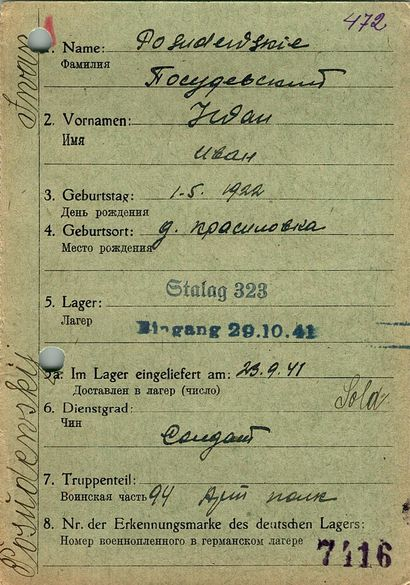 472
1. Name: Posudewskie
Фамилия
Посудевский
2. Vornamen: Iwan
Имя
Иван
3. Geburtstag: 1.5. 1922
День рождения
4. Geburtsort: д. Красиловка
Место рождения
Stalag 323
5. Lager:
Лагер
Eingang 29.10.41
5a. Im Lager eingeliefert am: 23.9.41
Доставлен в лагер (число)
6. Dienstgrad: Sold
Чин
Солдат
7. Truppenteil:
Воинская часть 94 Арт полк
8. Nr. der Erkennungsmarke des deutschen Lagers:
Номер военнопленного в германском лагере
7116
Posudewskij Iwan